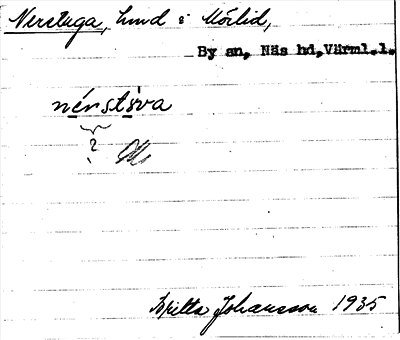 Nerstuga, hmd i Mörlid,
By sn, Näs hd, Värml.l.
nérstı̇va
?
Britta Johansson 1935